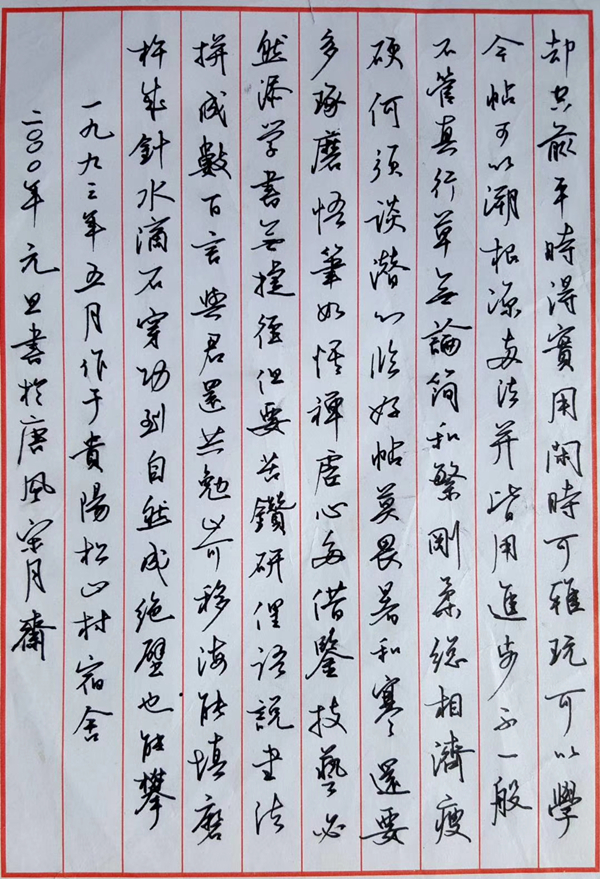 却平時得實用閑時可雅玩可以學
今帖可以溯根源兩法并皆用進步不一般
不管真行草無論簡和繁剛柔總相濟瘦
硬何須談潛心临好帖莫畏暑和寒還要
多琢磨悟筆如悟禪虛心多借鑒技藝必
然添學書無捷徑但要苦鑽研俚語說書法
拼成數百言與君還共勉山可移海能填磨
杵成針水滴石穿功到自然成絕壁也能攀
一九九三年五月作于貴陽松山村宿舍
二〇〇〇年元旦書於唐風宋月齋